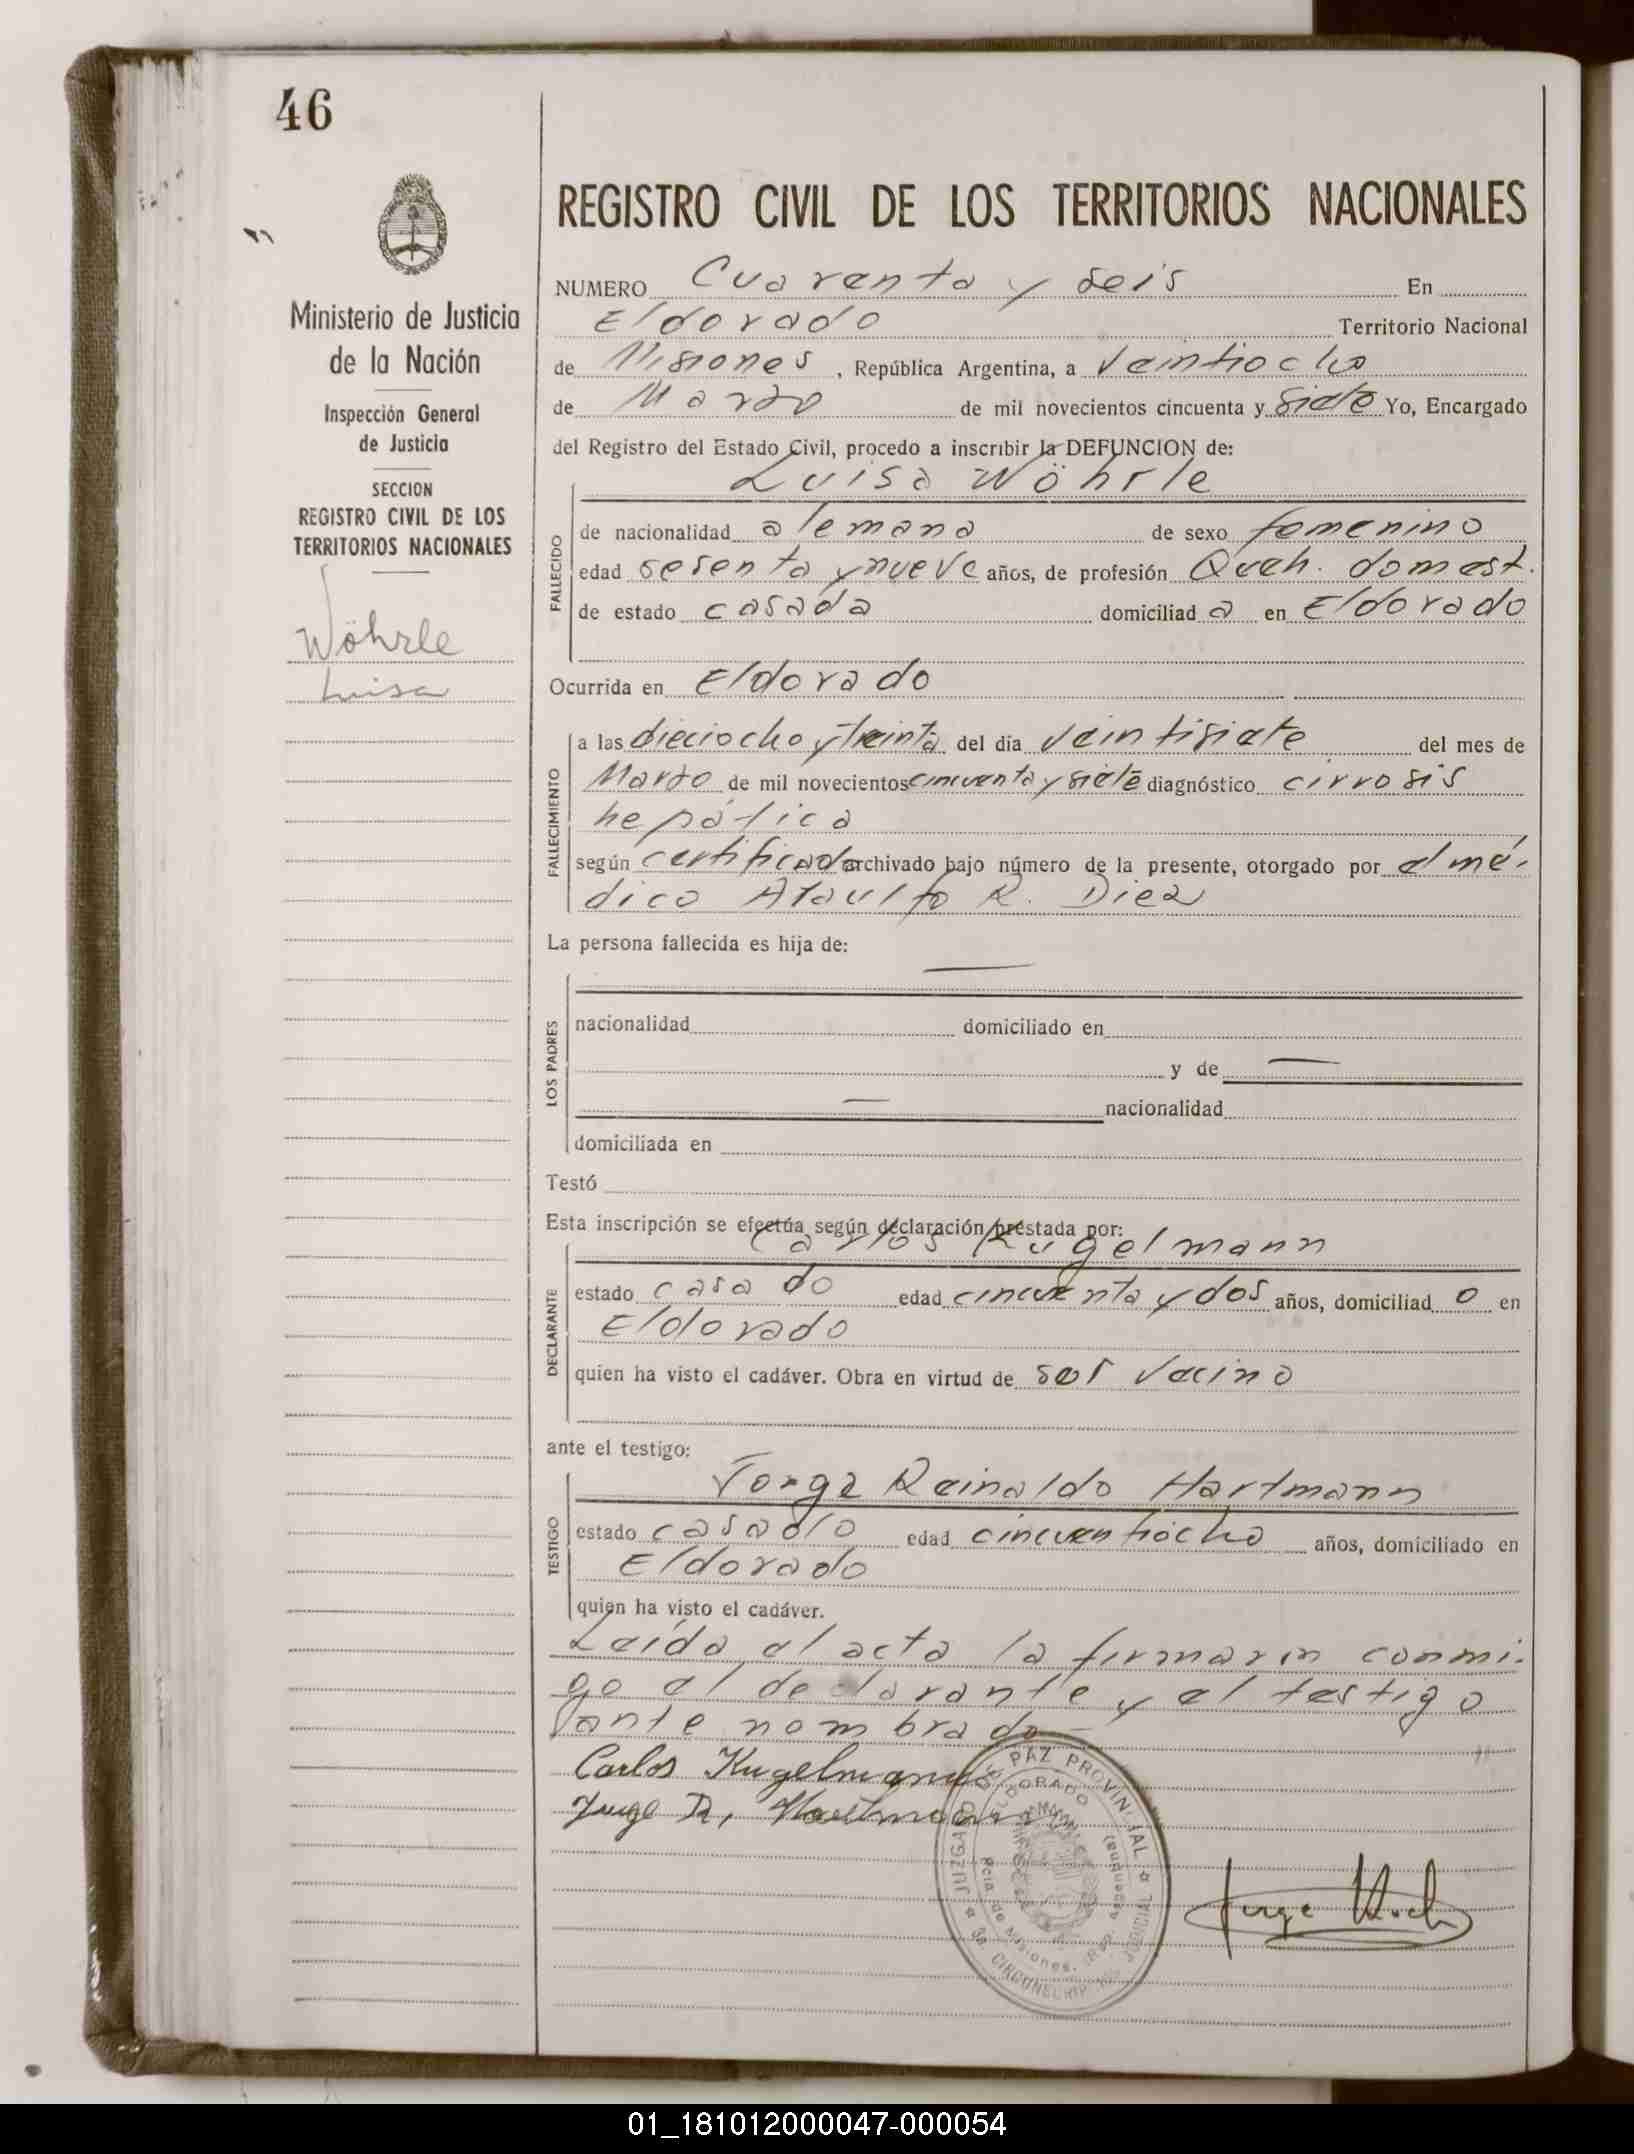 46
Ministerio de Justicia
de la Nación
Inspección General
de Justicia
SECCION
REGISTRO CIVIL DE LOS
TERRITORIOS NACIONALES
Wöhrle
Luisa
REGISTRO CIVIL DE LOS TERRITORIOS NACIONALES
NUMERO Cuarenta y seis En
Eldorado Territorio Nacional
de Misiones, República Argentina, a Veintiocho
de Marzo de mil novecientos cincuenta y siete Yo, Encargado
del Registro del Estado Civil, procedo a inscribir la DEFUNCION de:
Luisa Wöhrle
FALLECIDO
de nacionalidad alemana de sexo femenino
edad sesenta y nueve años, de profesión Queh. domest.
de estado casada domiciliad a en Eldorado
Ocurrida en Eldorado
FALLECIMIENTO
a las dieciocho y treinta del día veintisiete del mes de
Marzo de mil novecientos cincuenta y siete diagnóstico cirrosis
hepática
según certificado archivado bajo número de la presente, otorgado por el mé-
dico Ataulfo R. Diez
La persona fallecida es hija de:
—
LOS PADRES
nacionalidad domiciliado en
y de —
— nacionalidad
domiciliada en
Testó
Esta inscripción se efectúa según declaración prestada por:
Carlos Kugelmann
DECLARANTE
estado casado edad cincuenta y dos años, domiciliad o en
Eldorado
quien ha visto el cadáver. Obra en virtud de ser vecino
ante el testigo:
Jorge Reinaldo Hartmann
TESTIGO
estado casado edad cincuentiocho años, domiciliado en
Eldorado
quien ha visto el cadáver.
Leída el acta la firmarin conmi-
go el declarante y el testigo
ante nombrado-
Carlos Kugelmann
Jorge R. Hartmann
JUZGADO DE PAZ PROVINCIAL
ELDORADO
Pcia. de Misiones. (Rep. Argentina)
3a. CIRCUNSCRIP. JUDICIAL
Jorge Koch
01_181012000047-000054